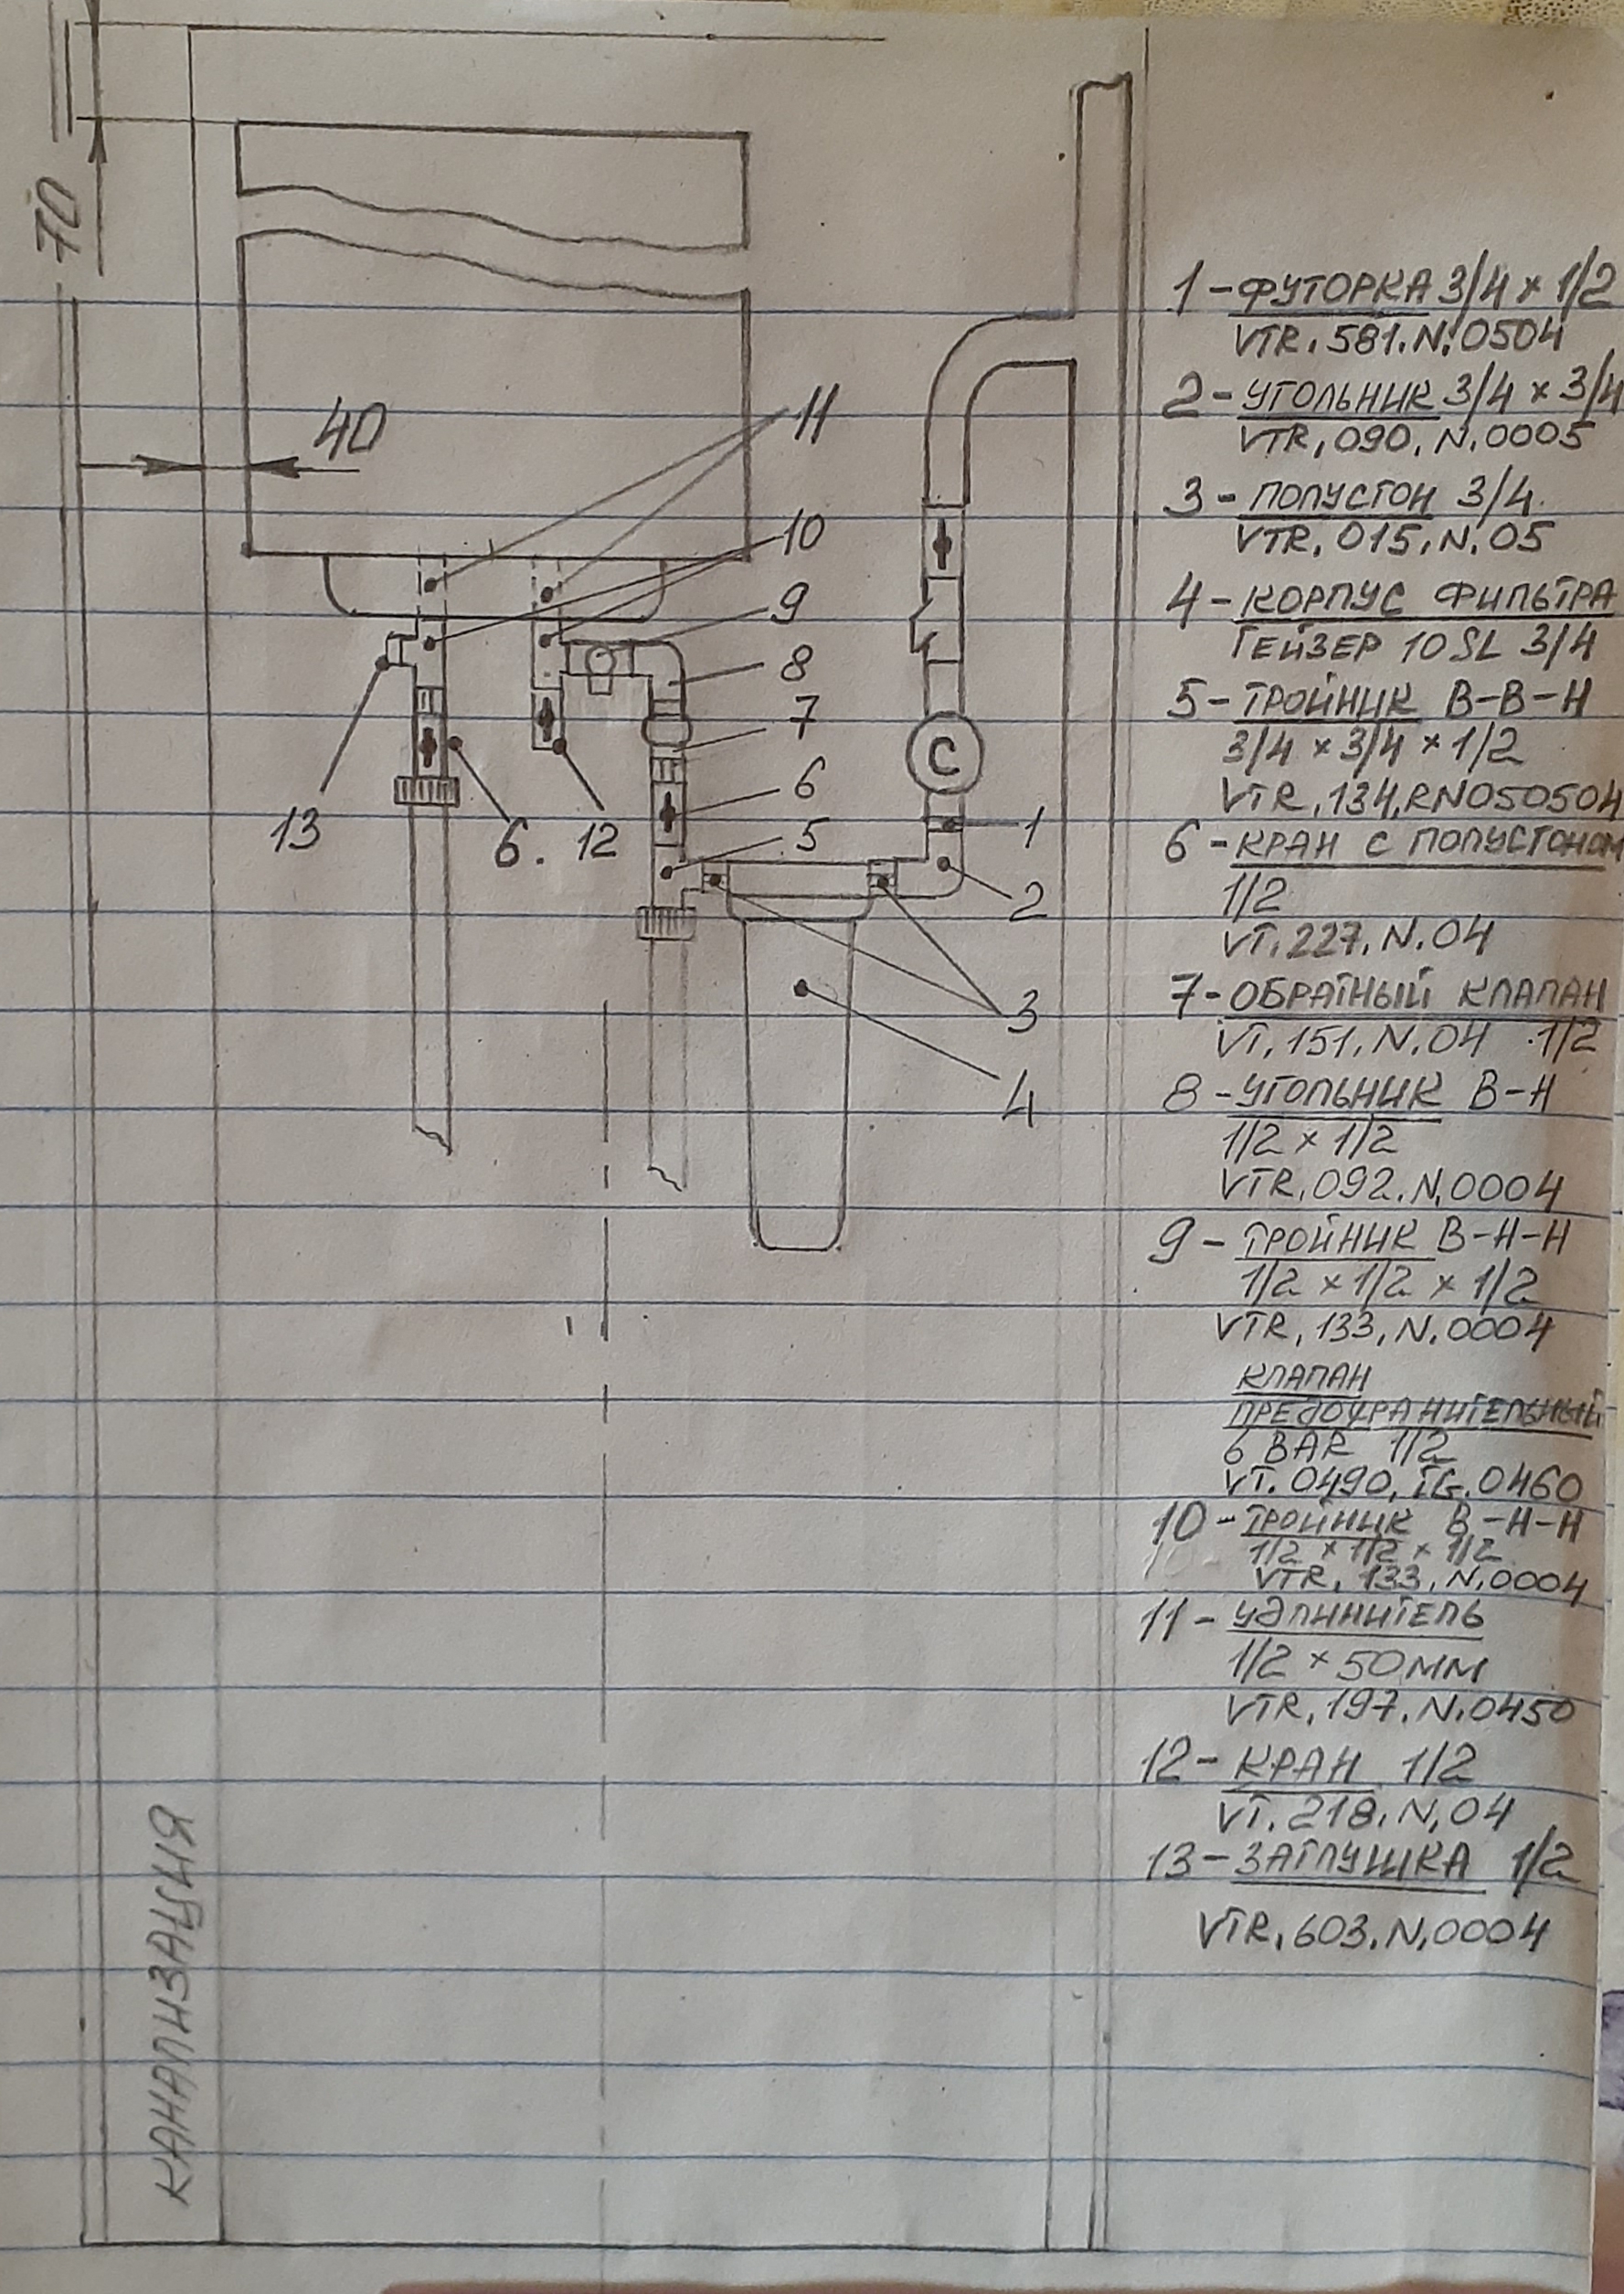 70
40
11
10
9
8
7
6
5
1
2
3
4
13
6.
12
С
КАНАЛИЗАЦИЯ
1-ФУТОРКА 3/4 × 1/2
VTR.581.N.0504
2-УГОЛЬНИК 3/4 × 3/4
VTR.090.N.0005
3-ПОЛУСГОН 3/4
VTR.015.N.05
4-КОРПУС ФИЛЬТРА
ГЕЙЗЕР 10SL 3/4
5-ТРОЙНИК В-В-Н
3/4 × 3/4 × 1/2
VTR.134.RN050504
6-КРАН С ПОЛУСГОНОМ
1/2
VT.227.N.04
7-ОБРАТНЫЙ КЛАПАН
VT.151.N.04 1/2
8-УГОЛЬНИК В-Н
1/2 × 1/2
VTR.092.N.0004
9-ТРОЙНИК В-Н-Н
1/2 × 1/2 × 1/2
VTR.133.N.0004
КЛАПАН
ПРЕДОХРАНИТЕЛЬНЫЙ
6 BAR 1/2
VT.0490.TG.0460
10-ТРОЙНИК В-Н-Н
1/2 × 1/2 × 1/2
VTR.133.N.0004
11-УДЛИНИТЕЛЬ
1/2 × 50ММ
VTR.197.N.0450
12-КРАН 1/2
VT.218.N.04
13-ЗАГЛУШКА 1/2
VTR.603.N.0004